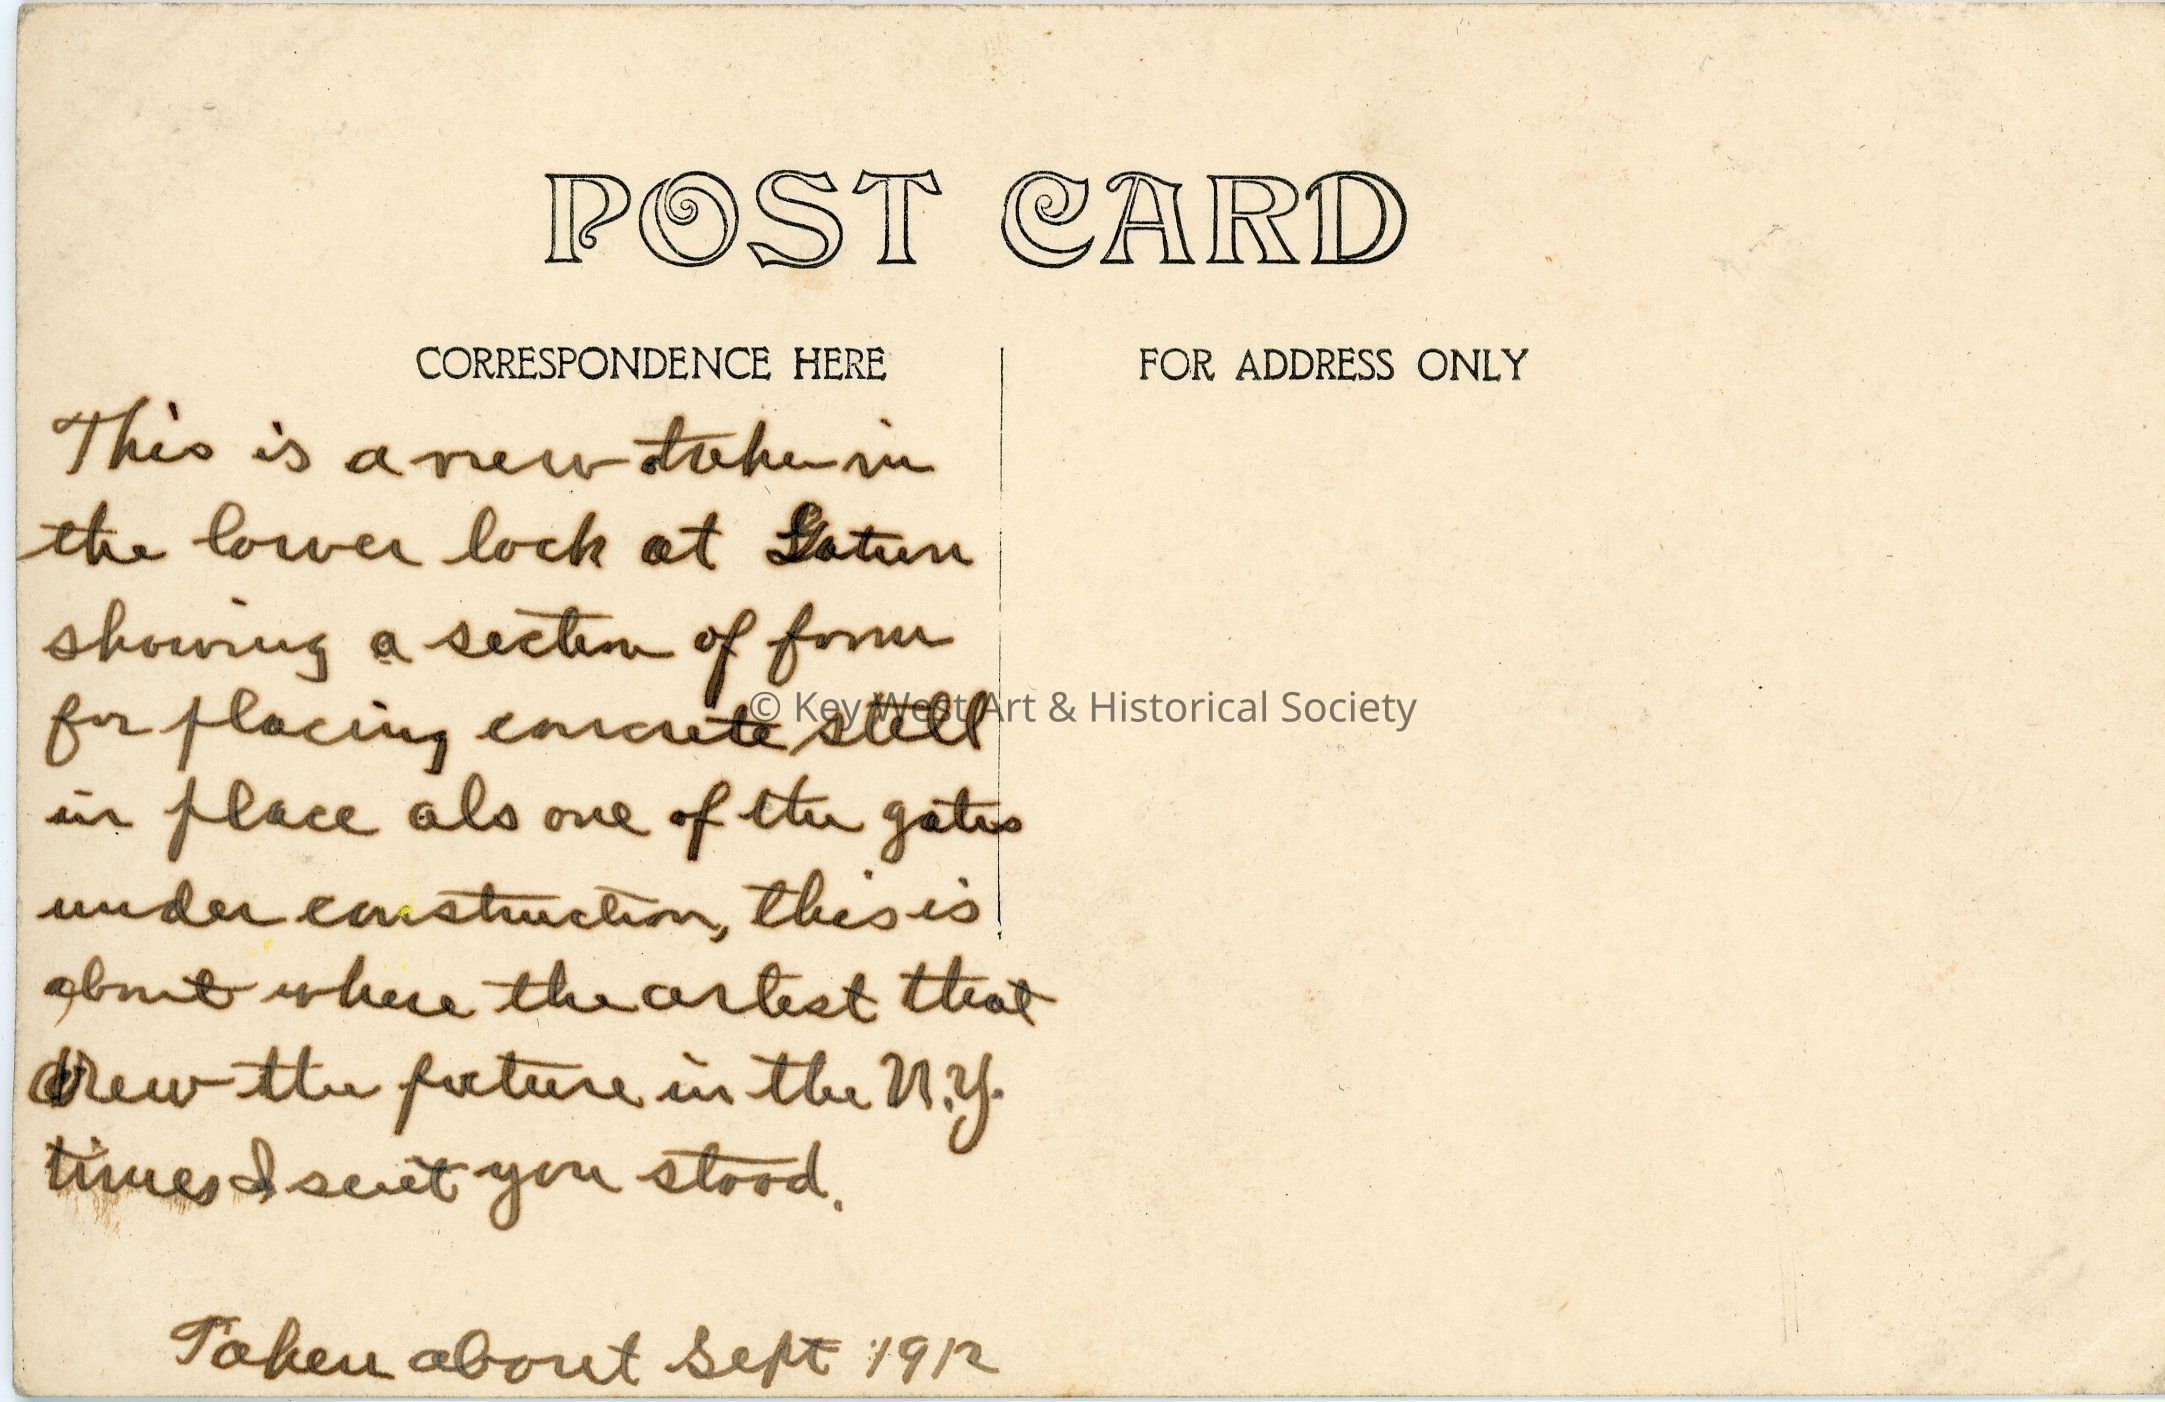 POST CARD
CORRESPONDENCE HERE
FOR ADDRESS ONLY
This is a view taken in
the lower lock at Gatun
showing a section of form
for placing concrete still
in place als one of the gates
under construction, this is
about where the artest that
drew the picture in the N.Y.
times I sent you stood.
Taken about Sept 1912
© Key West Art & Historical Society